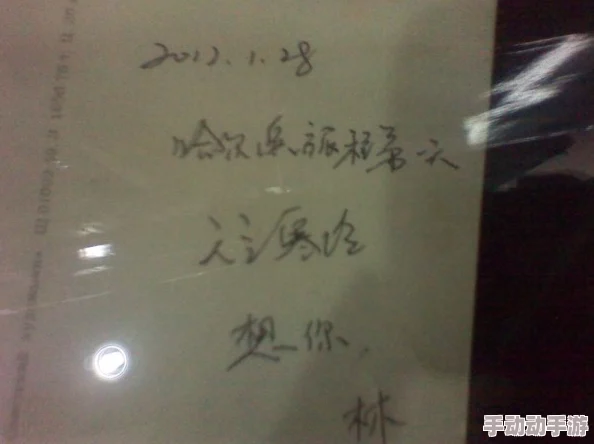 2012.1.28
哈尔滨旅程第一天
天气寒冷
想你.
林
手动动手游